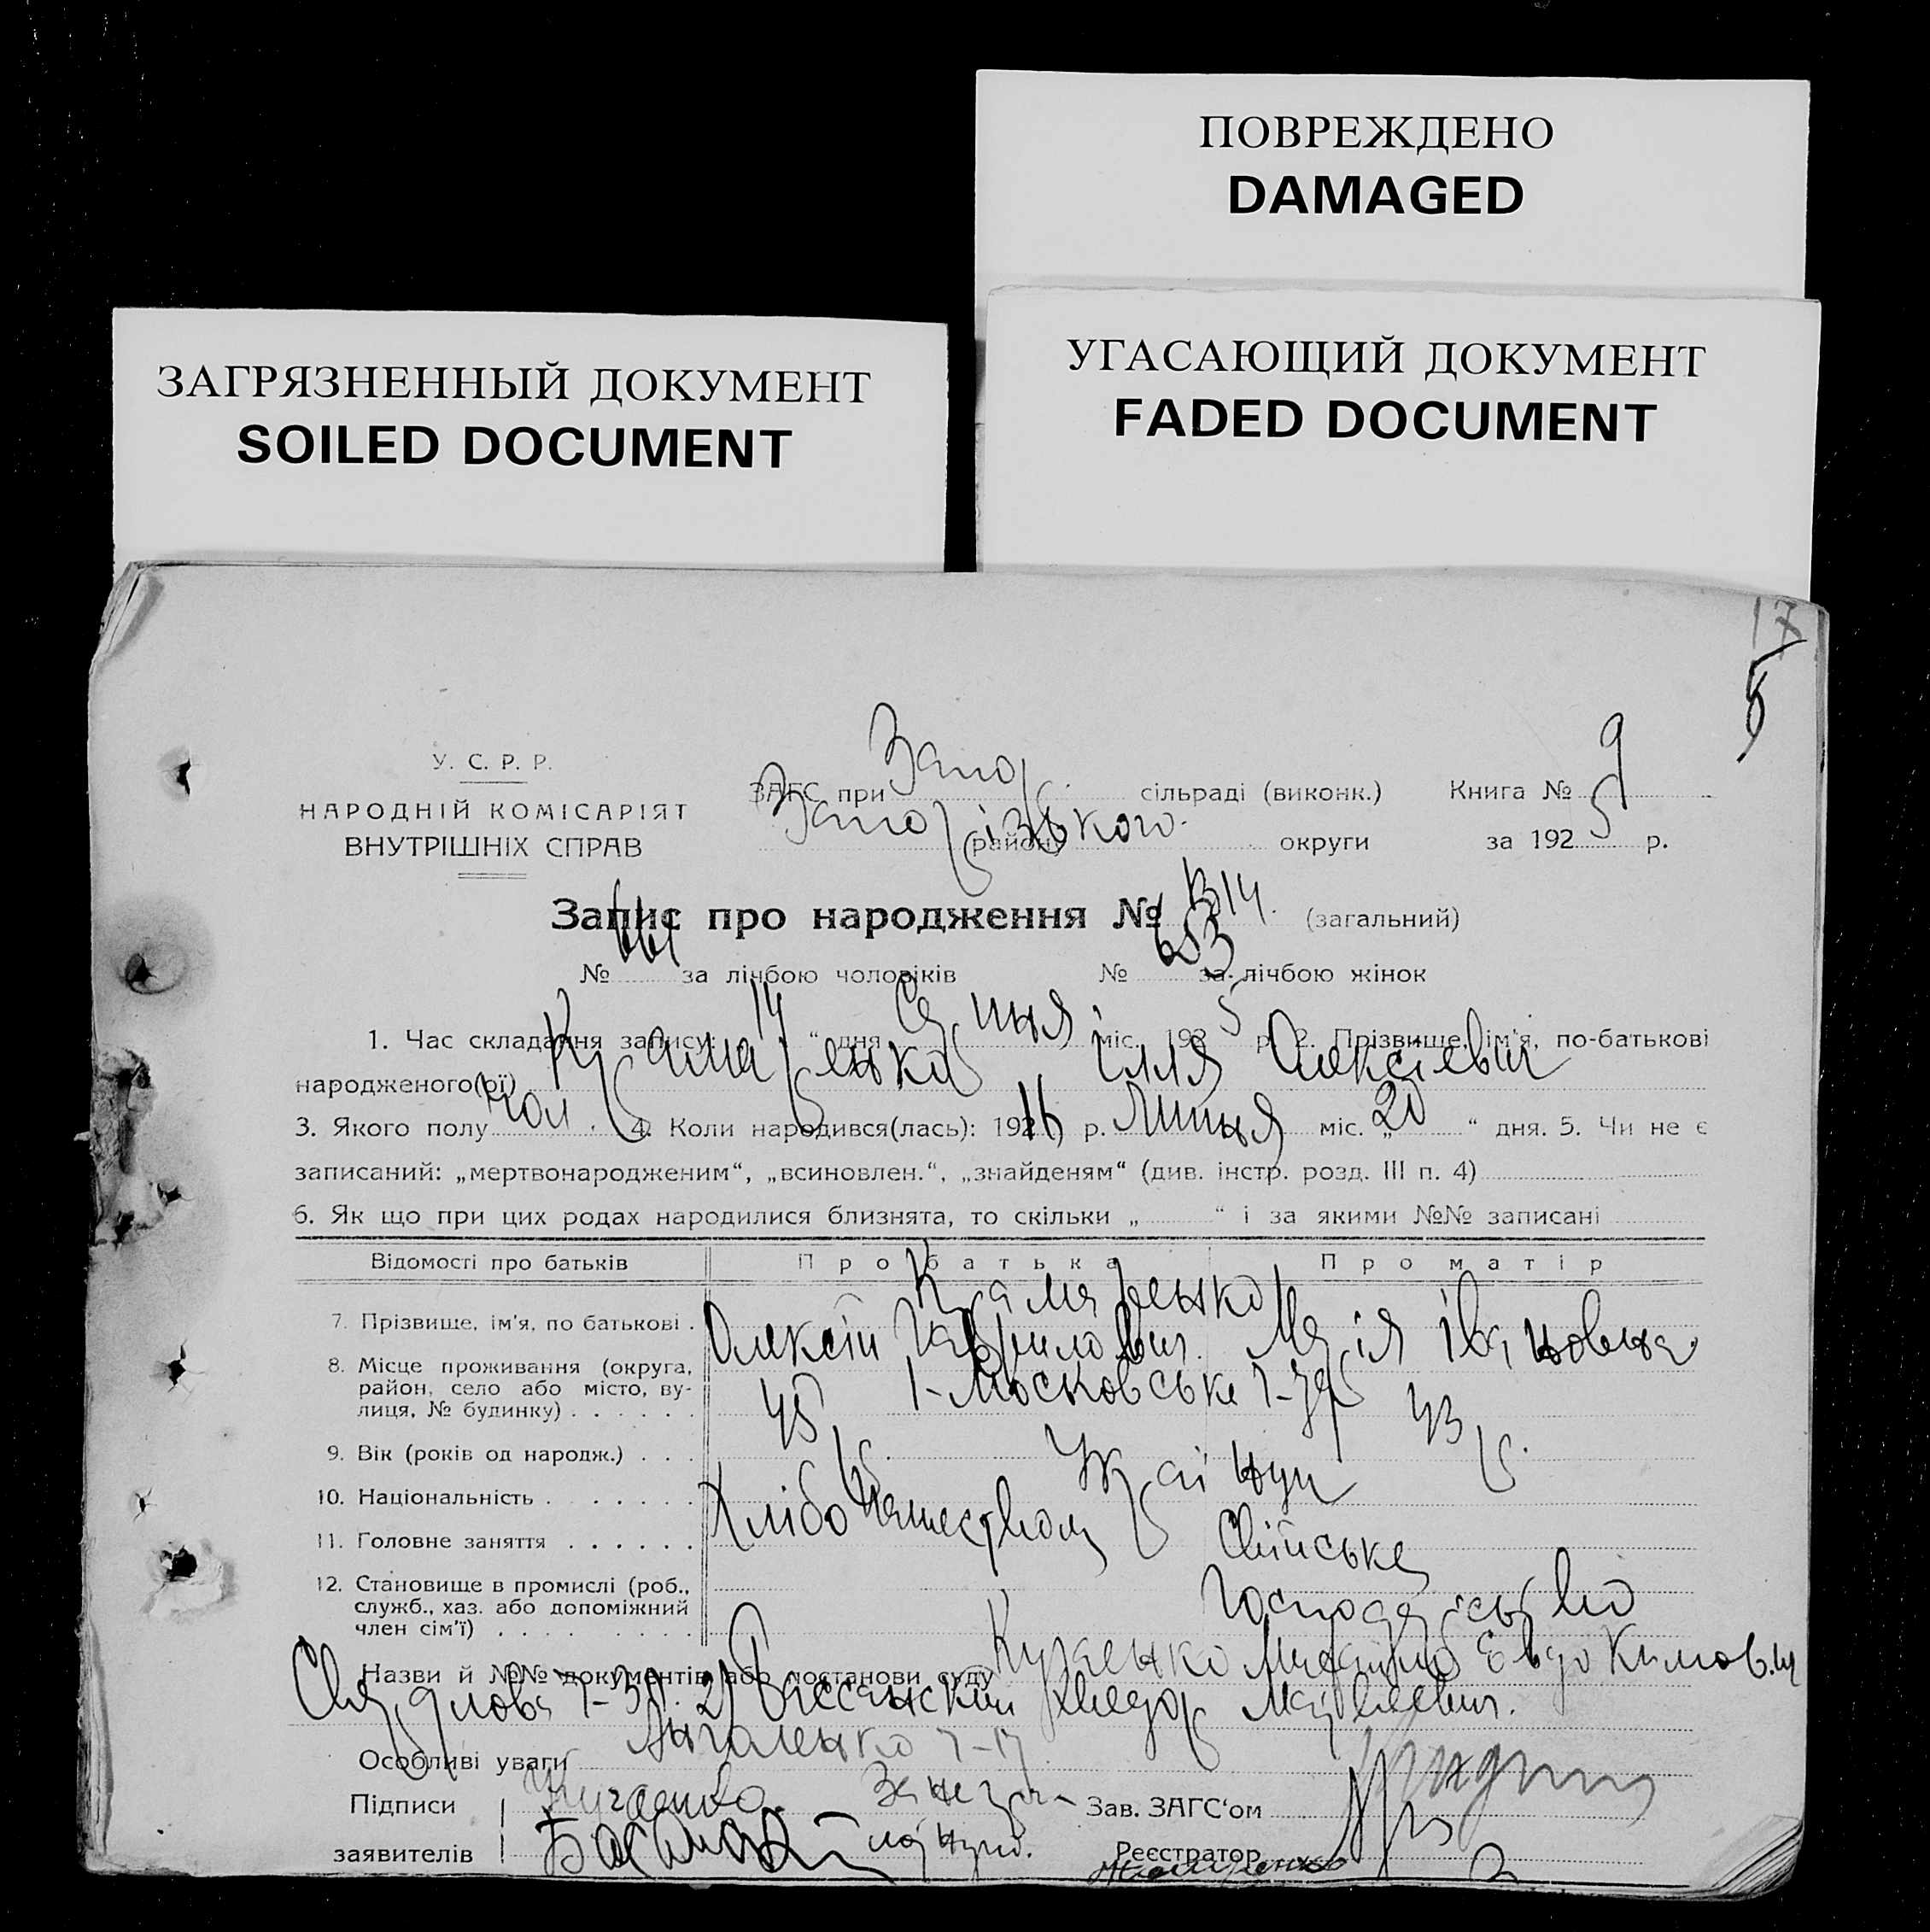 ПОВРЕЖДЕНО
DAMAGED
ЗАГРЯЗНЕННЫЙ ДОКУМЕНТ
SOILED DOCUMENT
УГАСАЮЩИЙ ДОКУМЕНТ
FADED DOCUMENT
17
5
У. С. Р. Р.
НАРОДНІЙ КОМІСАРІЯТ
ВНУТРІШНІХ СПРАВ
ЗАГС при Запор. сільраді (виконк.) Книга № 9
Запорізького району округи за 1925 р.
Запис про народження № 1314. (загальний)
№ 661 за лічбою чоловіків № 653 за лічбою жінок
1. Час складання запису: 14 “ дня Серпня міс. 1925 р. 2. Прізвище, ім'я, по-батькові
народженого(ої) Крамаренко Ілля Олексієвич
3. Якого полу чол. 4. Коли народився(лась): 192 р. Липня міс. „ 20 “ дня. 5. Чи не є
записаний: „мертвонародженим“, „всиновлен.“, „знайденям“ (див. інстр. розд. III п. 4)
6. Як що при цих родах народилися близнята, то скільки „ “ і за якими №№ записані
Відомості про батьків Про батька Про матір
7. Прізвище, ім'я, по батькові . Крамаренко
Олексій Гаврилович. Марія Івановна
8. Місце проживання (округа,
район, село або місто, ву-
лиця, № будинку) . . . . . . 1-Московська 7-79
9. Вік (років од народж.) . . . 45 р. 43 р.
10. Національність . . . . . . . Українці
11. Головне заняття . . . . . . Хліборобством Свійське
Господарство
12. Становище в промислі (роб.,
служб., хаз. або допоміжний
член сім'ї) . . . . . . . . .
Назви й №№ документів або постанови суду Куценко Евдокимович
Свердлова 7-30. 2) Хведор Матвеевич.
Особливі уваги 7-17
Підписи
заявителів
Зав. ЗАГС‘ом
Реєстратор